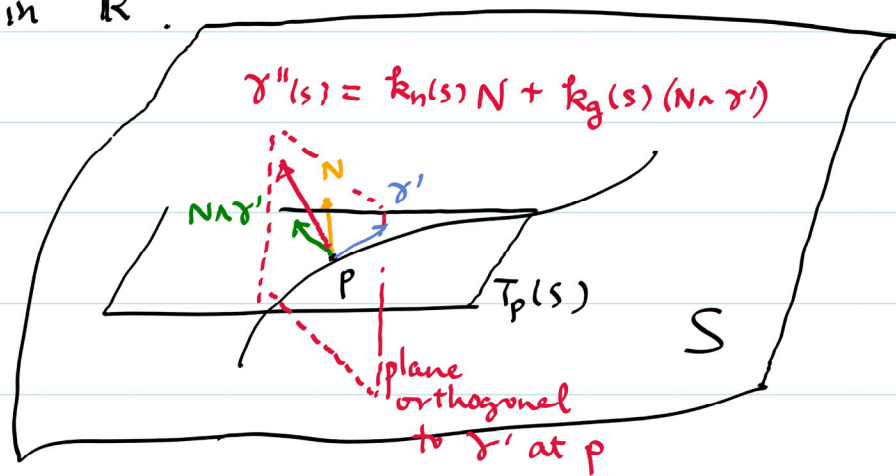 in R.
γ''(s) = kn(s) N + kg(s) (N ∧ γ')
N
γ'
N∧γ'
p
Tp(S)
S
plane
orthogonal
to γ' at p